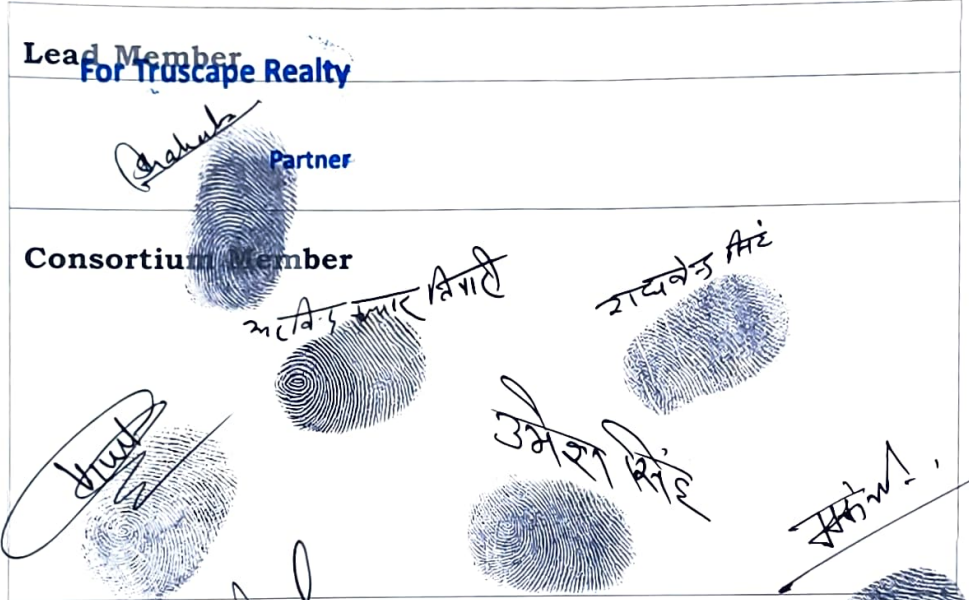 Lead Member
For Truscape Realty
Partner
Consortium Member
अरविन्द कुमार त्रिपाठी
राघवेन्द्र सिंह
उमेश सिंह